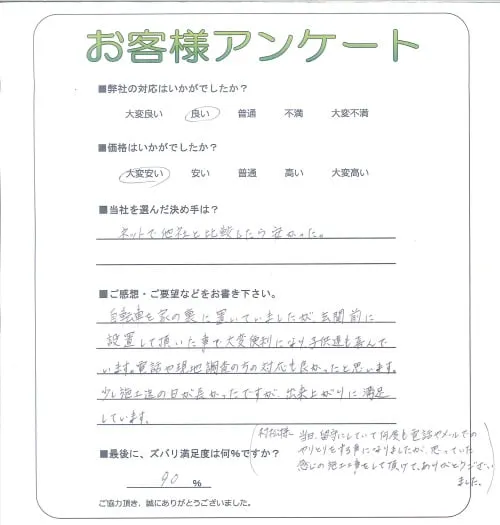 お客様アンケート
■弊社の対応はいかがでしたか？
大変良い 良い 普通 不満 大変不満
■価格はいかがでしたか？
大変安い 安い 普通 高い 大変高い
■当社を選んだ決め手は？
ネットで他社と比較したら安かった。
■ご感想・ご要望などをお書き下さい。
自転車を家の裏に置いていましたが、玄関前に
設置して頂いた事で大変便利になり子供達も喜んで
います。電話や現地調査の方の対応も良かったと思います。
少し施工迄の日が長かったですが、出来上がりに満足
しています。
■最後に、ズバリ満足度は何%ですか？
90 %
様へ 当日、留守にしていて何度も電話やメールでの
やりとりをする事になりましたが、思っていた
感じの施工工事をして頂けて、ありがとうござい
ました。
ご協力頂き、誠にありがとうございました。